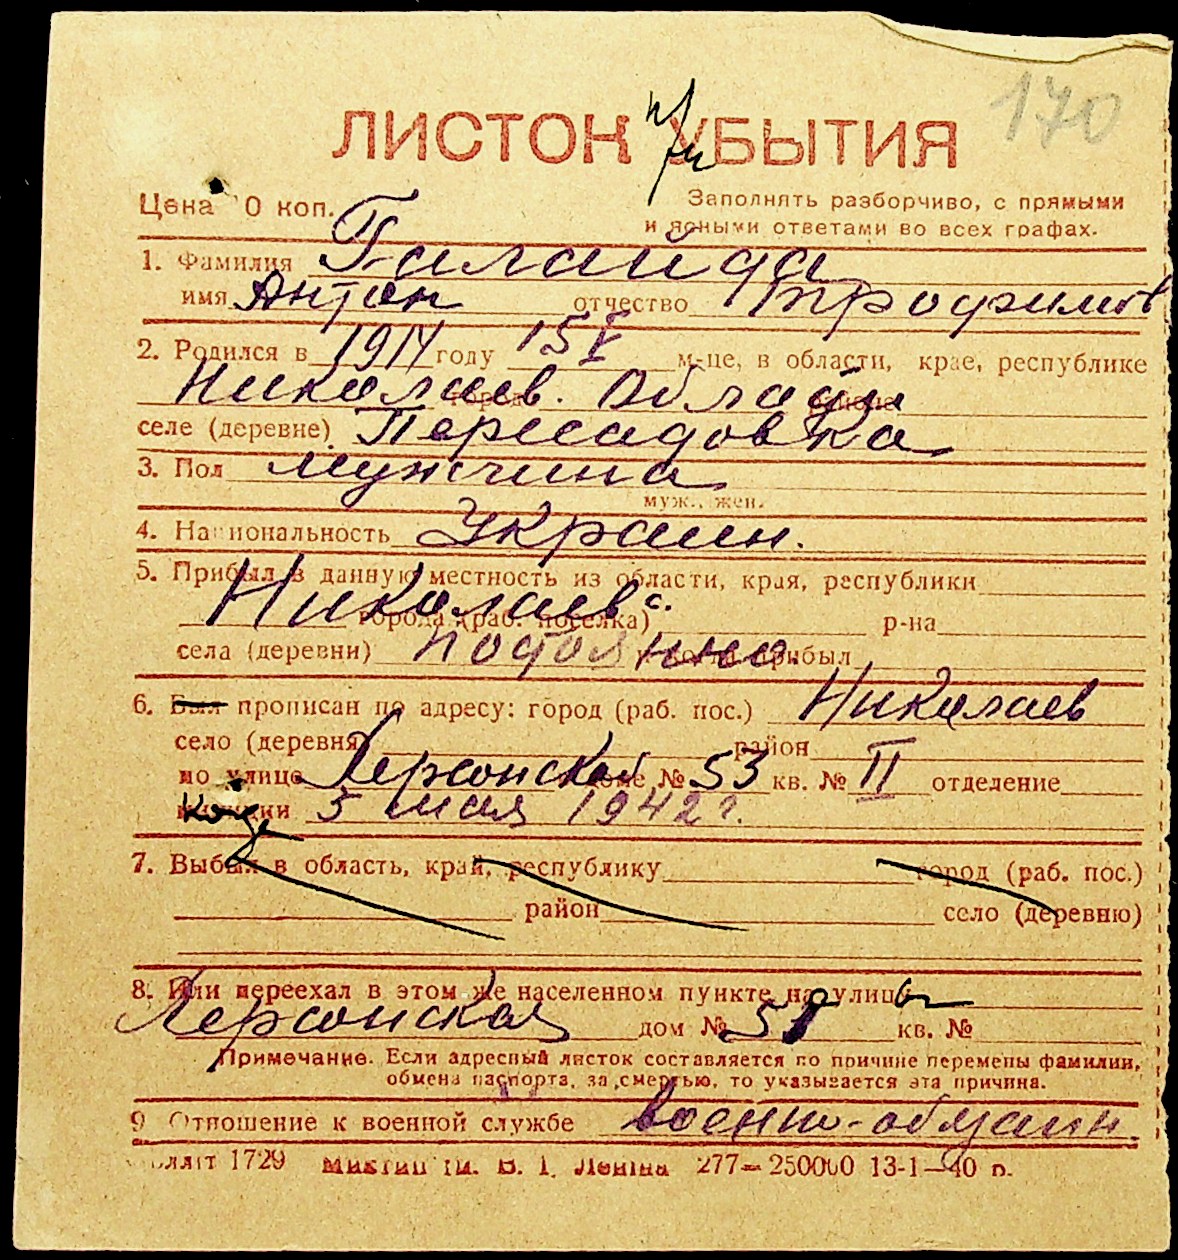 170
ЛИСТОК УБЫТИЯ
Цена 10 коп.
Заполнять разборчиво, с прямыми
и ясными ответами во всех графах.
1. Фамилия Галайда
имя Антон отчество Трофимов
2. Родился в 1914 году 15 V м-це, в области, крае, республике
Николаев. Област
селе (деревне) Пересадовка
3. Пол мужчина
муж., жен.
4. Национальность Украин.
5. Прибыл в данную местность из области, края, республики
Николаев с. города (раб. поселка) р-на
села (деревни) постоянно. прибыл
6. Был прописан по адресу: город (раб. пос.) Николаев
село (деревня) район
по улице Херсонской доме № 53 кв. № II отделение
милиции 5 мая 1942 г.
7. Выбыл в область, край, республику город (раб. пос.)
район село (деревню)
8. Или переехал в этом же населенном пункте на улицу
Херсонская дом № 58 кв. №
Примечание. Если адресный листок составляется по причине перемены фамилии,
обмена паспорта, за смертью, то указывается эта причина.
9 Отношение к военной службе военно-обязанн.
1729 Леніна 277—250000 13-1—40 р.